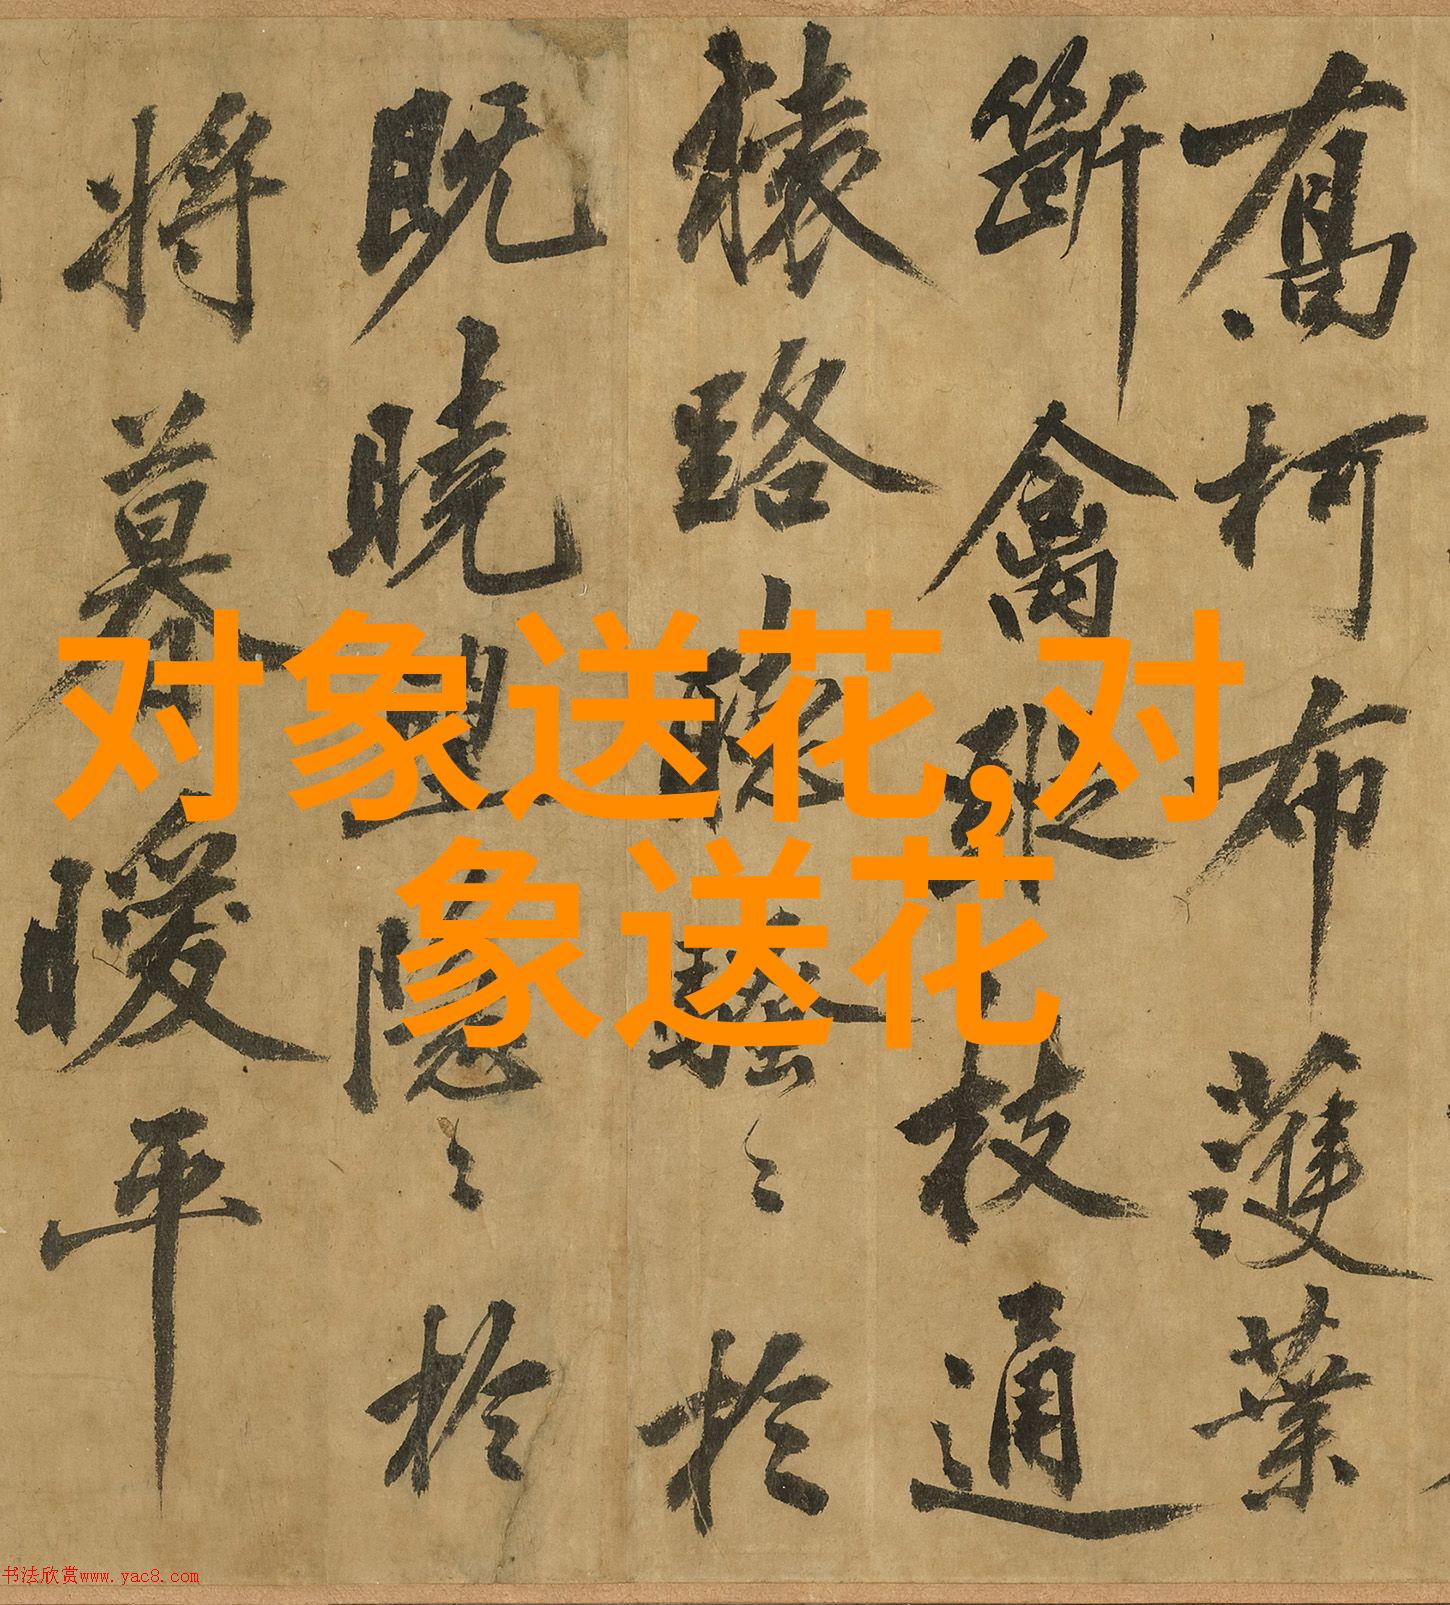 喬柯布濩葉
斷禽蹤枝通
猿路聽騷〻於
既曉望隱〻於
將暮曖平
对象送花,对
象送花
书法欣赏www.yac8.com